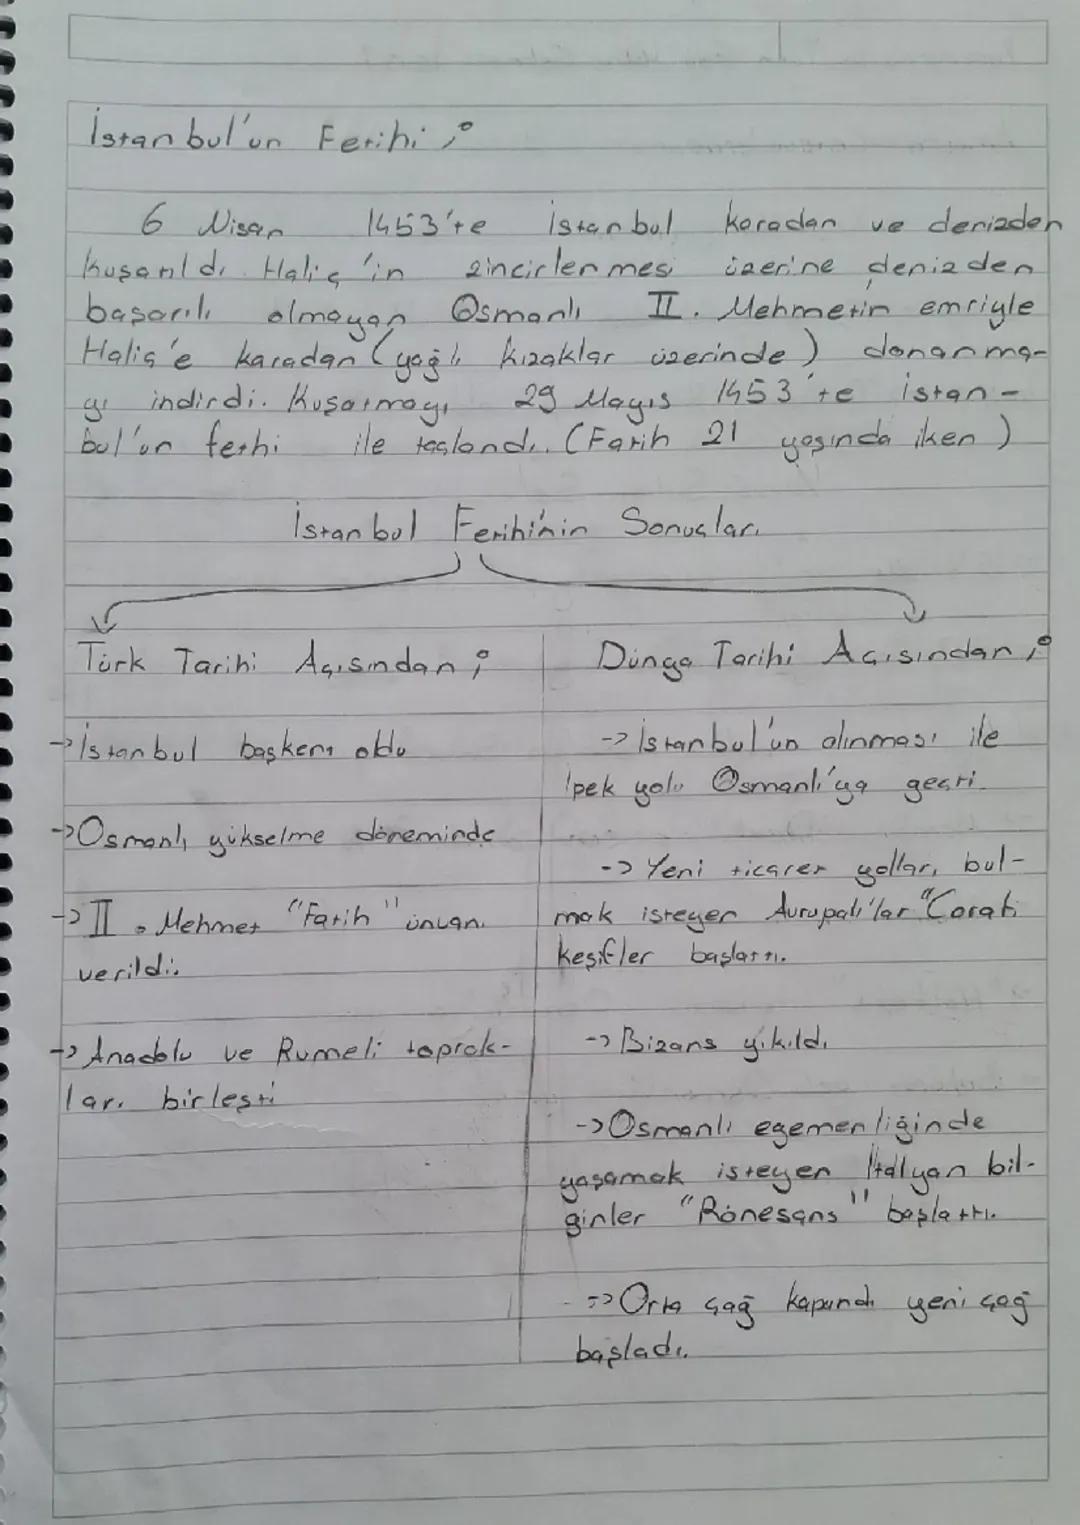 İstanbul'un Fetihi ;
6 Nisan 1453'te İstanbul karadan ve denizden
kuşarıldı. Haliç'in zincirlenmesi üzerine denizden
başarılı olmayan Osmanlı II. Mehmetin emriyle
Haliç'e karadan (yağlı kızaklar üzerinde) donanma-
yı indirdi. Kuşatmayı 29 Mayıs 1453'te İstan-
bul'un fethi ile taçlandı. (Fatih 21 yaşında iken)
İstanbul Fetihi'nin Sonuçları
Türk Tarihi Açısından ;
-> İstanbul başkent oldu
-> Osmanlı yükselme döneminde
-> II. Mehmet "Fatih" ünvanı
verildi.
-> Anadolu ve Rumeli toprak-
ları birleşti
Dünya Tarihi Açısından ;
-> İstanbul'un alınması ile
İpek yolu Osmanlı'ya geçti.
-> Yeni ticaret yolları bul-
mak isteyen Avrupalı'lar "Coğrafi
keşifler başlattı.
-> Bizans yıkıldı
-> Osmanlı egemenliğinde
yaşamak isteyen İtalyan bil-
ginler "Rönesans" başlattı.
-> Orta çağ kapandı yeni çağ
başladı.